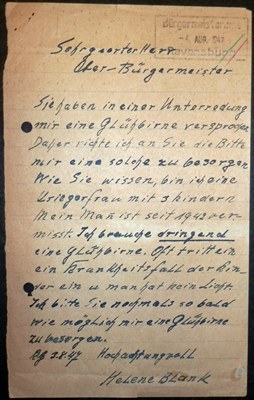 Bürgermeisteramt
4. AUG. 1947
Ravensburg
Sehrgeerter Herr
Ober-Bürgermeister
Sie haben in einer Unterredung
mir eine Glühbirne versprochen
Daher richte ich an Sie die Bitte
mir eine solche zu besorgen
Wie Sie wissen, bin ich eine
Kriegerfrau mit 3 Kindern
Mein Man ist seit 1942 ver-
misst. Ich brauche dringend
eine Glühbirne. Oft tritt ein
ein Krankheitsfall der Kin-
der ein u man hat kein Licht
Ich bitte Sie nochmals so bald
wie möglich mir eine Glühbirne
zu besorgen.
2.8.47 Hochachtungsvoll
Helene Blank